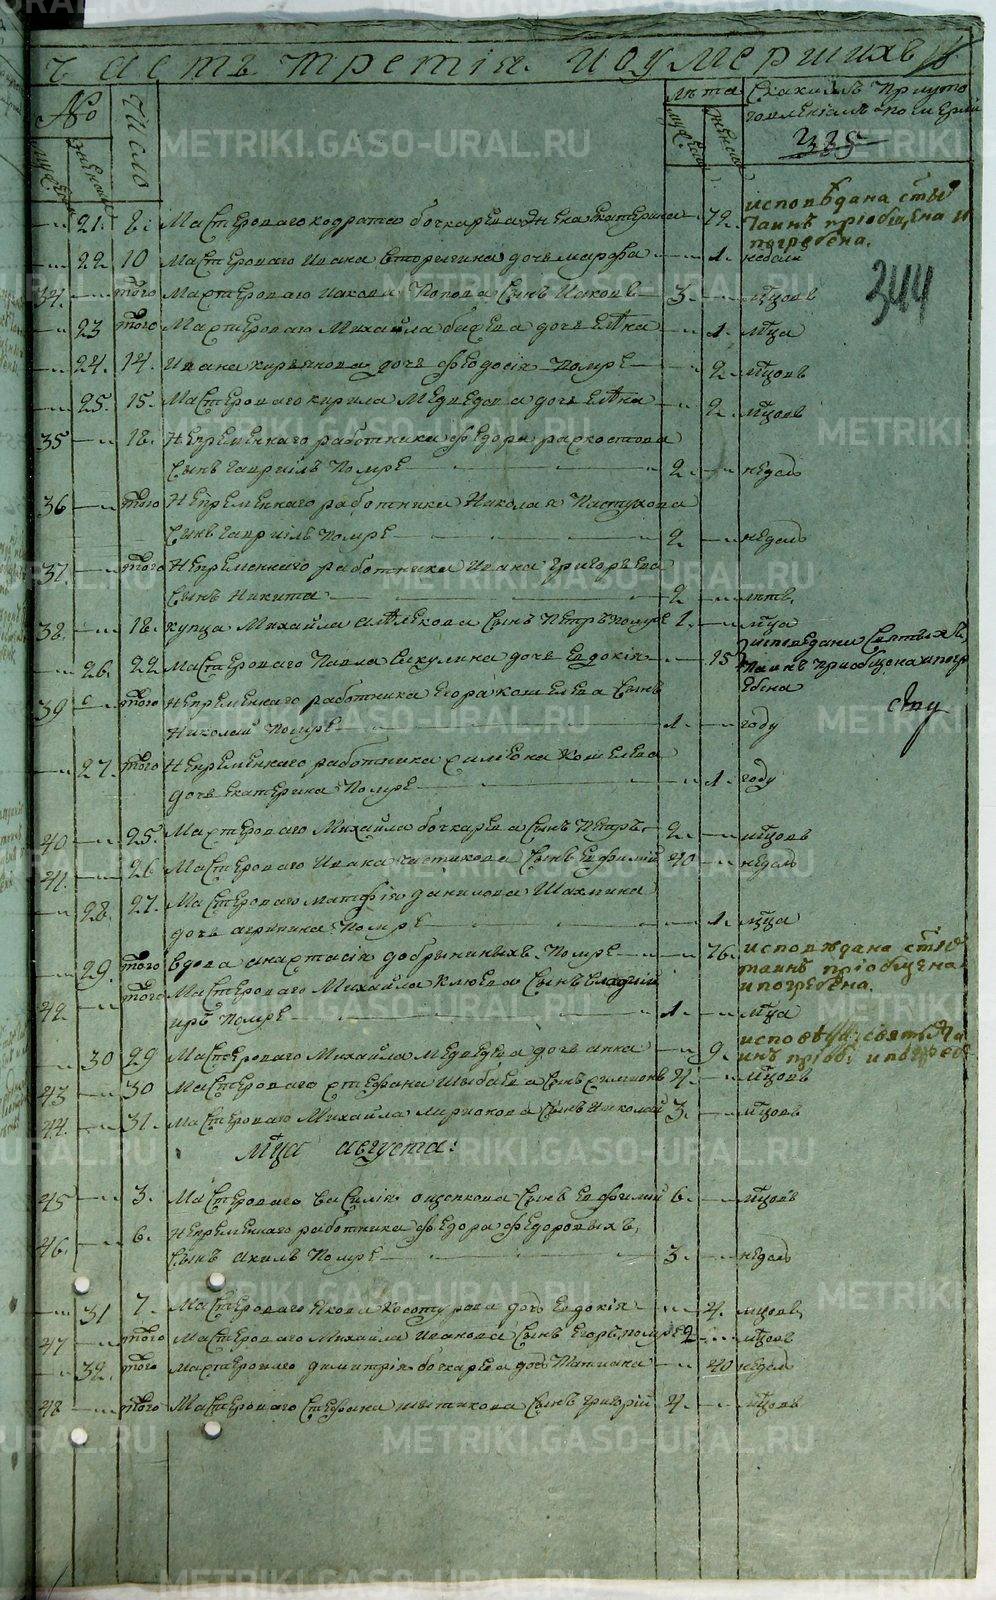 часть третія. иоумершихъ
№ Число лѣта Скакимъ Пригото
мужеска женска мужеска женска товленіемъ померли
335
344
21. 8. Мастероваго кодрата бочкарева жена екатерина 72. исповѣдана сты таинъ пріобщена и погребена.
22. 10 Мастероваго Ивана вторыгина дочь марфа 1. недели
34. того Мастероваго Иакова Попова сынъ Иаковъ 3. мцовъ
23 того Мастероваго Михайла дочь елѣна 1. мца
24. 14. Ивана дочь феодосія Помре 2 мцовъ
25. 15. Мастероваго кирила Медведева дочь елѣна 2. мцовъ
35 18. Непременнаго работника федора раскостова
сынъ гавриилъ Помре 2. недель
36 того Непременнаго работника Николая Пастухова
сынъ гавриилъ Помре 2 недель
37. того Непременнаго работника Ивана григорьева
сынъ Никита 2 летъ.
38. 18. купца Михайла сынъ Петръ помре 1. мца
26. 22 Мастероваго Павла секулина дочь евдокія 15 исповедана святыхъ таинъ приобщена ипогребена
39 того Непременнаго работника егора кошелева сынъ
Николай Помре 1. году
27. того Непременнаго работника симеона Кошелева
дочь екатерина Помре 1. году
40 25. Мастероваго Михайла бочкарева сынъ Петръ 2. мцовъ
41. 26 Мастероваго Ивана частикова сынъ ефимій 40 недель
28. 27. Мастероваго матфія данилова Шахмина
дочь агрипина Помре 1. мца
29. того вдова анастасія добрыниныхъ Помре 76. исповѣдана стыхъ таинъ пріобщена ипогребена.
42 того Мастероваго Михайла Клюева сынъ владим
иръ Помре 1. мца
30 29 Мастероваго Михайла Медведева дочь анна 9.
43 30 Мастероваго стефана шыбаева сынъ симионъ 4. мцовъ
44. 31. Мастероваго Михайла мирюкова сынъ Николай 3. мцовъ
мца августа:
45 3. Мастероваго василія ощепкова сынъ ефимій 6. мцовъ
46. 6. Непременнаго работника федора федоровыхъ,
сынъ акилъ Помре 3. недель
31 7. Мастероваго Якова Косотурова дочь евдокія 4. мцовъ
47 того Мастероваго Михайла Иванова сынъ егоръ помре 2 мцовъ
32. того мастероваго димитрія бочкарева дочь Татиана 40 недель
48 того Мастероваго Стефана шытикова сынъ григорій 4. мцовъ
METRIKI.GASO-URAL.RU